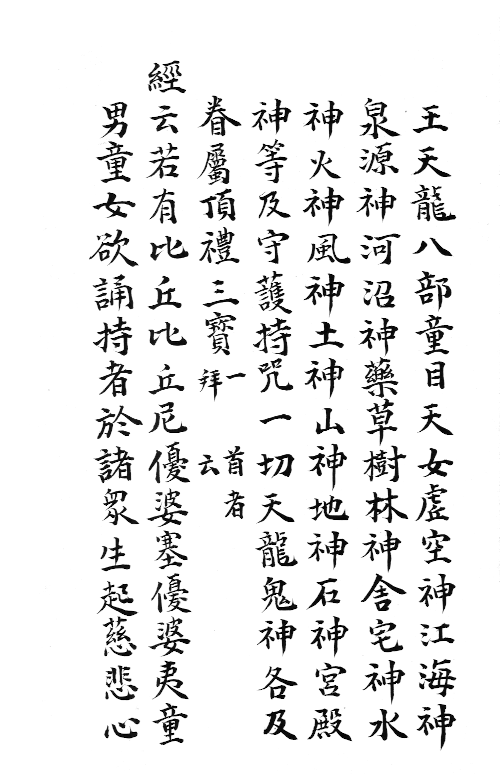 王天龍八部童目天女虛空神江海神
泉源神河沼神藥草樹林神舍宅神水
神火神風神土神山神地神石神宮殿
神等及守護持咒一切天龍鬼神各及
眷屬頂禮三寶一拜 首者云
經云若有比丘比丘尼優婆塞優婆夷童
男童女欲誦持者於諸眾生起慈悲心